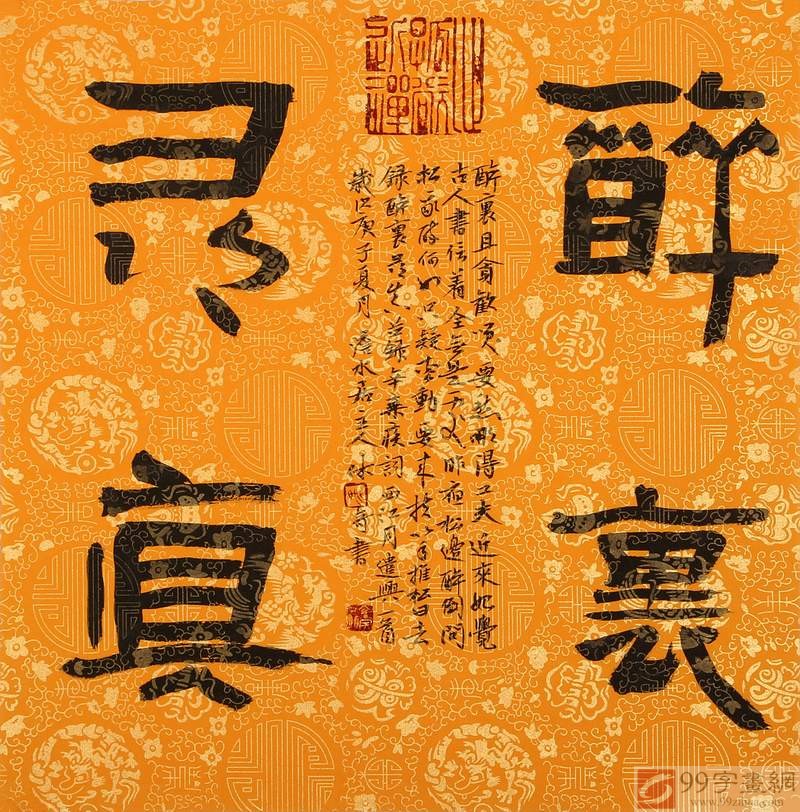 醉裏
真
醉裏且貪歡笑要愁那得工夫近來始覺
古人書信著全無是處昨夜松邊醉倒問
松我醉何如只疑松動要來扶以手推松曰去
錄醉裏 並錄辛棄疾詞西江月遣興一首
歲次庚子夏月 水居主人 書
99字畫網